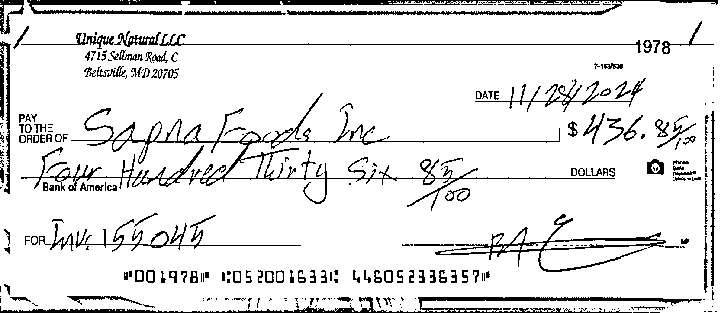 Unique Natural LLC
4715 Sellman Road, C
Beltsville, MD 20705
1978
7-163/520
DATE 11/28/2024
PAY TO THE ORDER OF Sapna Foods Inc $ 436.85/100
Four Hundred Thirty Six 85/100 DOLLARS
Bank of America
FOR Inv: 155045
⑈001978⑈ ⑆052001633⑆ 446052336357⑈